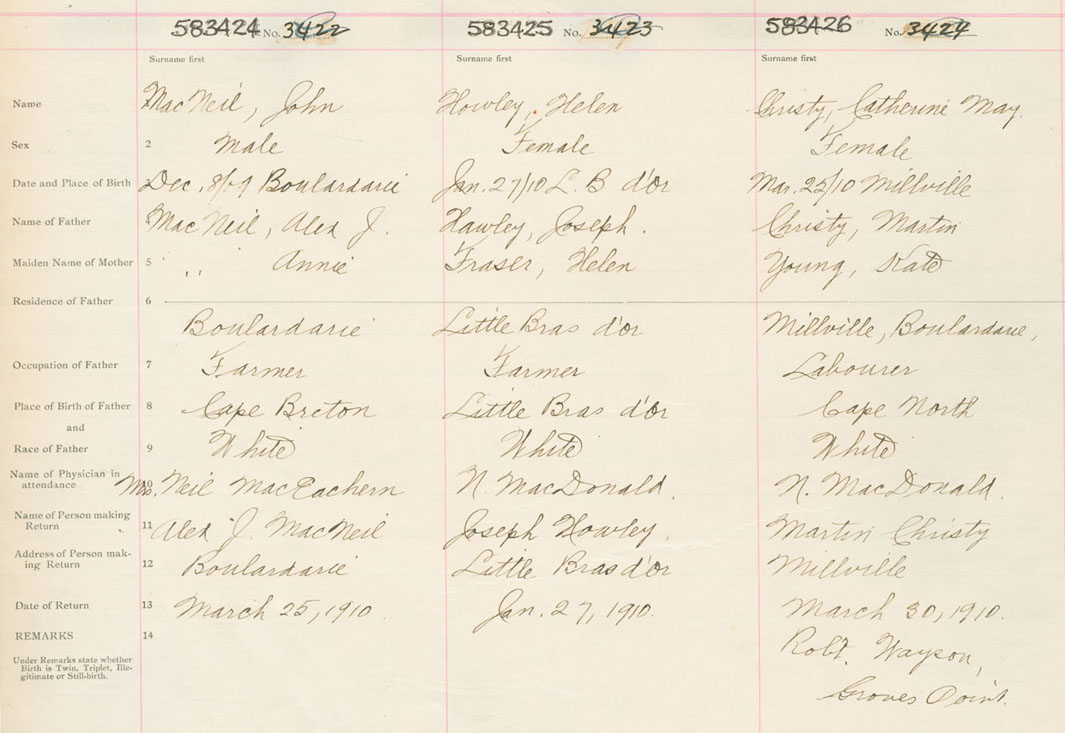 583424 No. 3422 583425 No. 3423 583426 No. 3424
Surname first Surname first Surname first
Name MacNeil, John Howley, Helen Christy, Catherine May.
Sex 2 Male Female Female
Date and Place of Birth Dec. 8/09 Boulardarie Jan. 27/10 L. B d'or Mar. 25/10 Millville
Name of Father 4 MacNeil, Alex J. Hawley, Joseph. Christy, Martin
Maiden Name of Mother 5 ,, Annie Fraser, Helen Young, Kate
Residence of Father 6
Boulardarie Little Bras d'or Millville, Boulardarie,
Occupation of Father 7 Farmer Farmer Labourer
Place of Birth of Father 8 Cape Breton Little Bras d'or Cape North
and
Race of Father 9 White White White
Name of Physician in
attendance 10 Mrs. Neil MacEachern N. MacDonald. N. MacDonald.
Name of Person making
Return 11 Alex J. MacNeil Joseph Howley. Martin Christy
Address of Person mak-
ing Return 12 Boulardarie Little Bras d'or Millville
Date of Return 13 March 25, 1910. Jan. 27, 1910. March 30, 1910.
REMARKS 14 Robt. Wayson,
Under Remarks state whether
Birth is Twin, Triplet, Ille-
gitimate or Still-birth.
Groves Point.